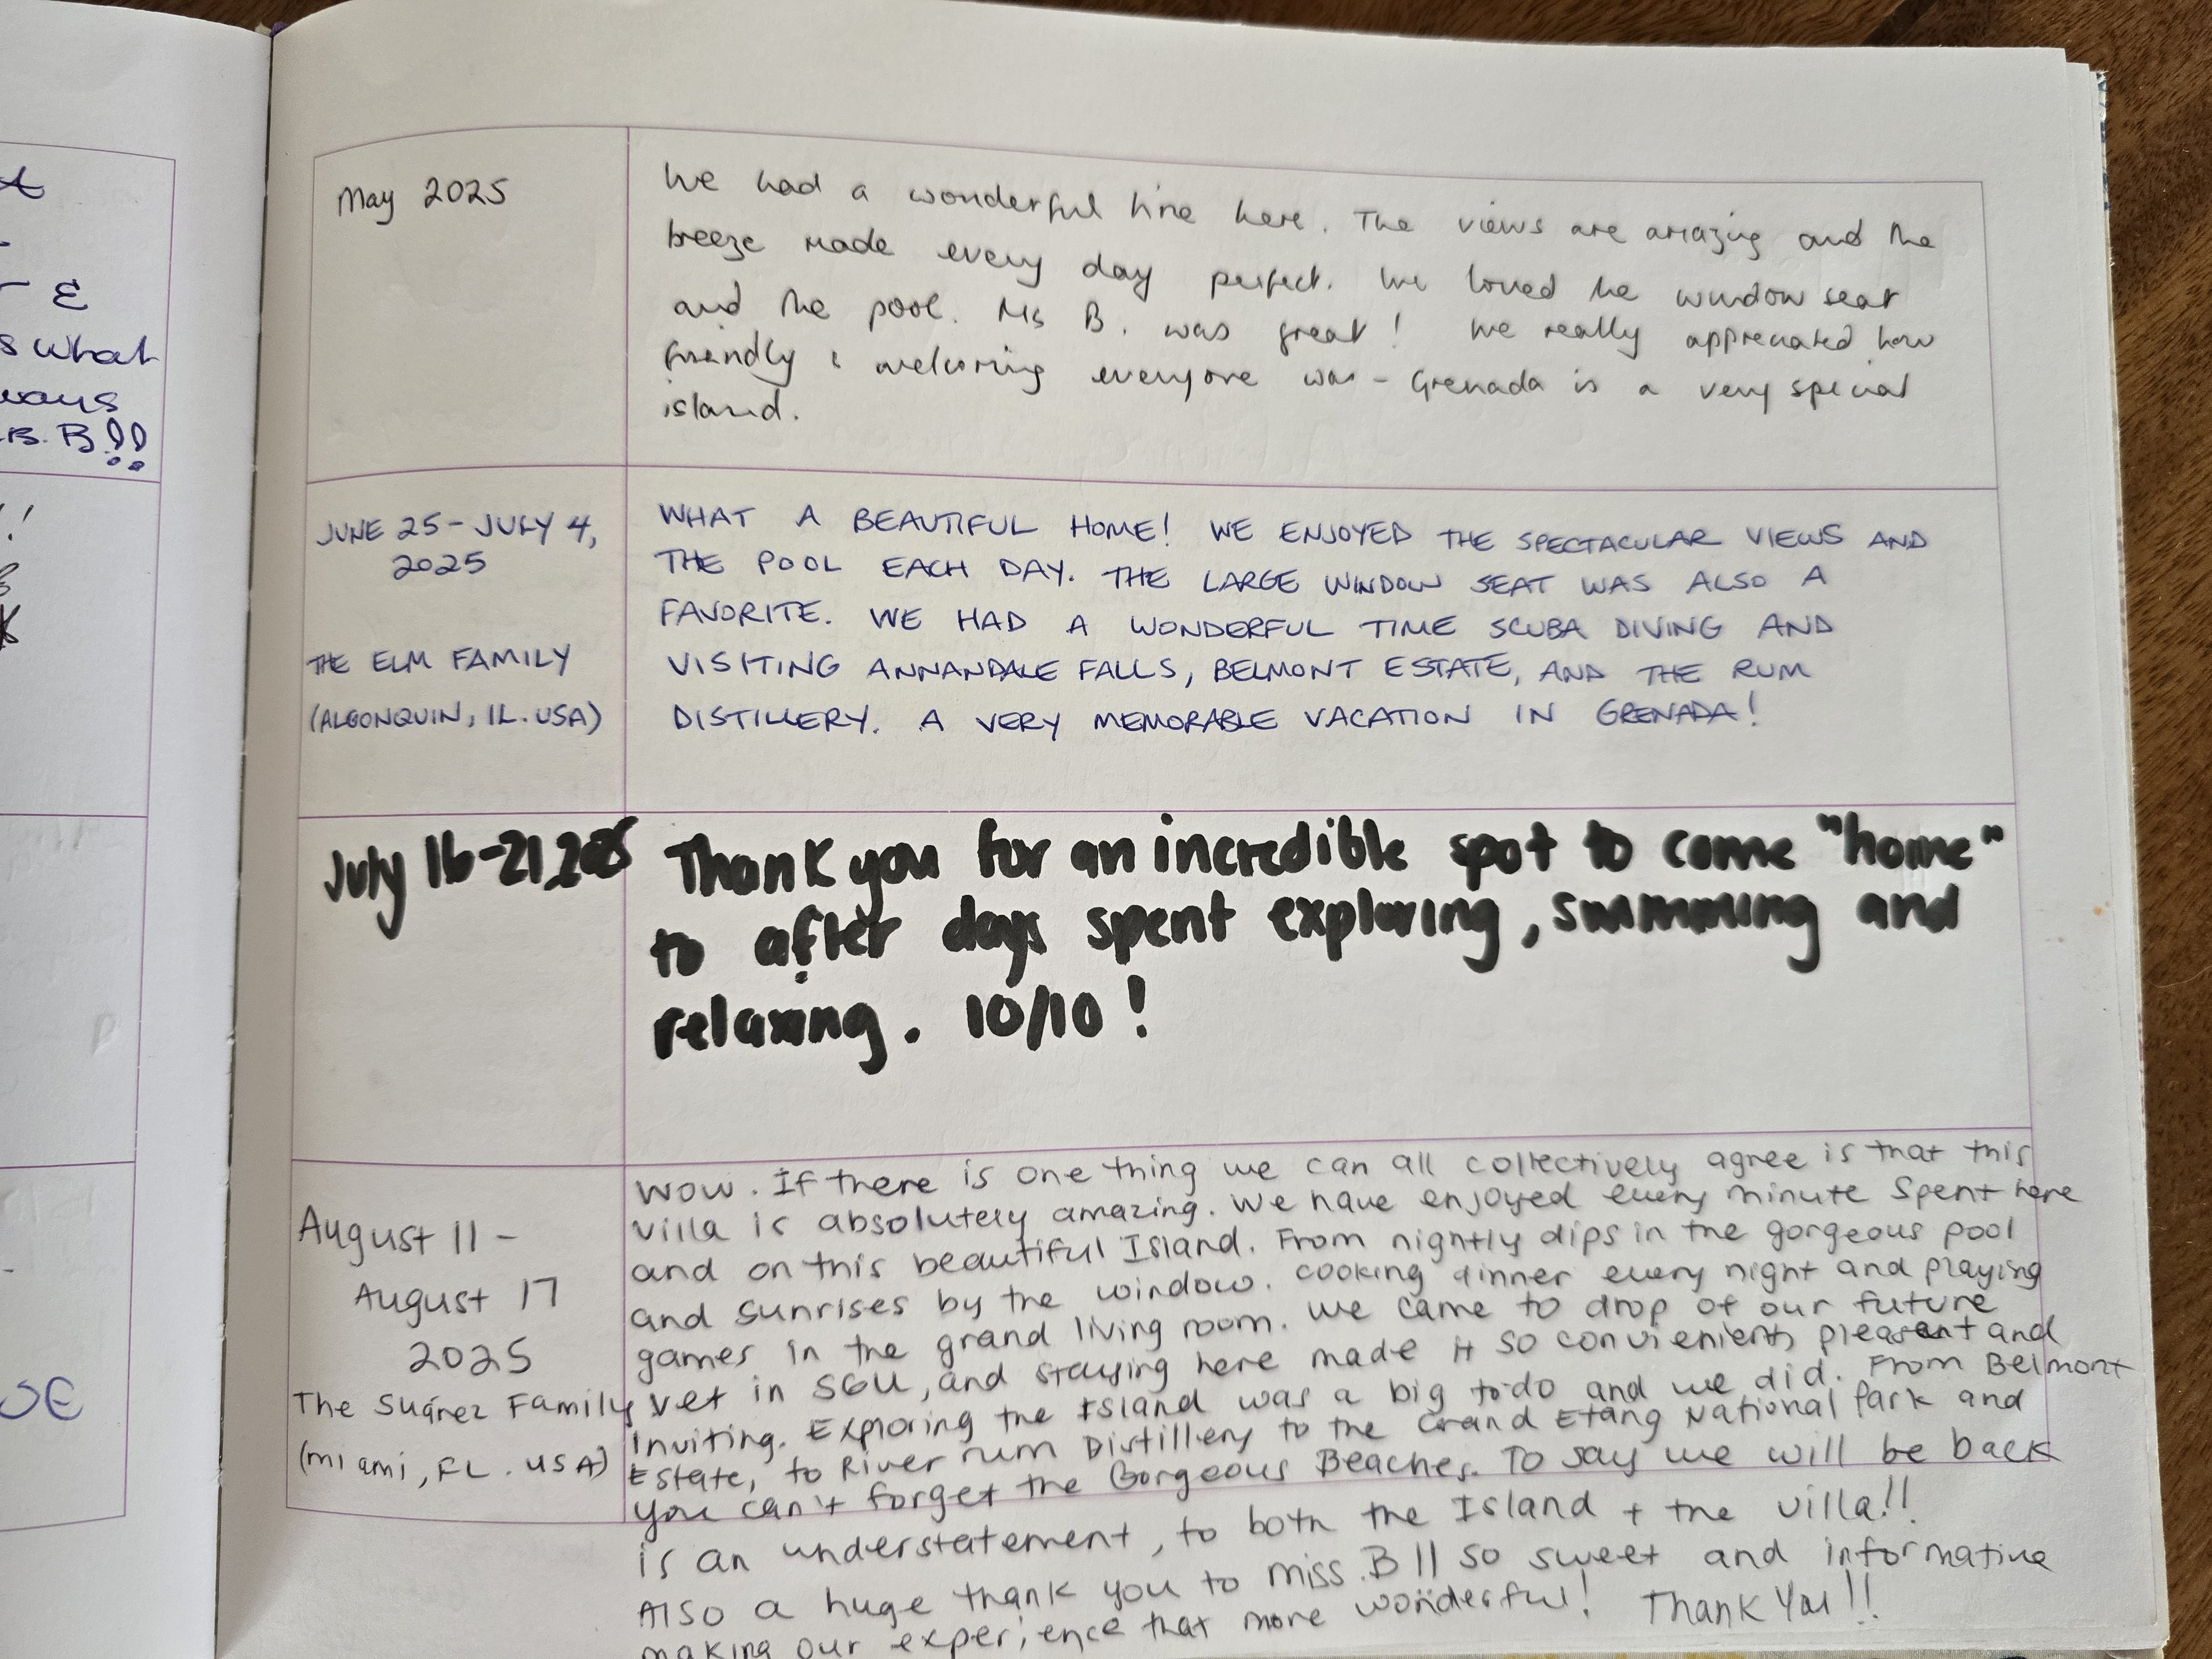 A
E
s what
ways
B. B!!
!
OE
May 2025
We had a wonderful time here. The views are amazing and the
breeze made every day perfect. We loved the window seat
and the pool. Ms B. was great! We really appreciated how
friendly & welcoming everyone was - Grenada is a very special
island.
JUNE 25 - JULY 4,
2025
THE ELM FAMILY
(ALGONQUIN, IL. USA)
WHAT A BEAUTIFUL HOME! WE ENJOYED THE SPECTACULAR VIEWS AND
THE POOL EACH DAY. THE LARGE WINDOW SEAT WAS ALSO A
FAVORITE. WE HAD A WONDERFUL TIME SCUBA DIVING AND
VISITING ANNANDALE FALLS, BELMONT ESTATE, AND THE RUM
DISTILLERY. A VERY MEMORABLE VACATION IN GRENADA!
July 16-21, 2025
Thank you for an incredible spot to come "home"
to after days spent exploring, swimming and
relaxing. 10/10!
August 11 -
August 17
2025
The Suárez Family
(Miami, FL. USA)
WOW. If there is one thing we can all collectively agree is that this
villa is absolutely amazing. We have enjoyed every minute spent here
and on this beautiful Island. From nightly dips in the gorgeous pool
and sunrises by the window. Cooking dinner every night and playing
games in the grand living room. We came to drop of our future
vet in SGU, and staying here made it so convienient, pleasant and
inviting. Exploring the Island was a big to do and we did. From Belmont
Estate, to River rum Distillery to the Grand Etang National Park and
you can't forget the Gorgeous Beaches. To say we will be back
is an understatement, to both the Island + the villa!!
Also a huge thank you to miss. B!! So sweet and informative
making our experience that more wonderful! Thank You!!